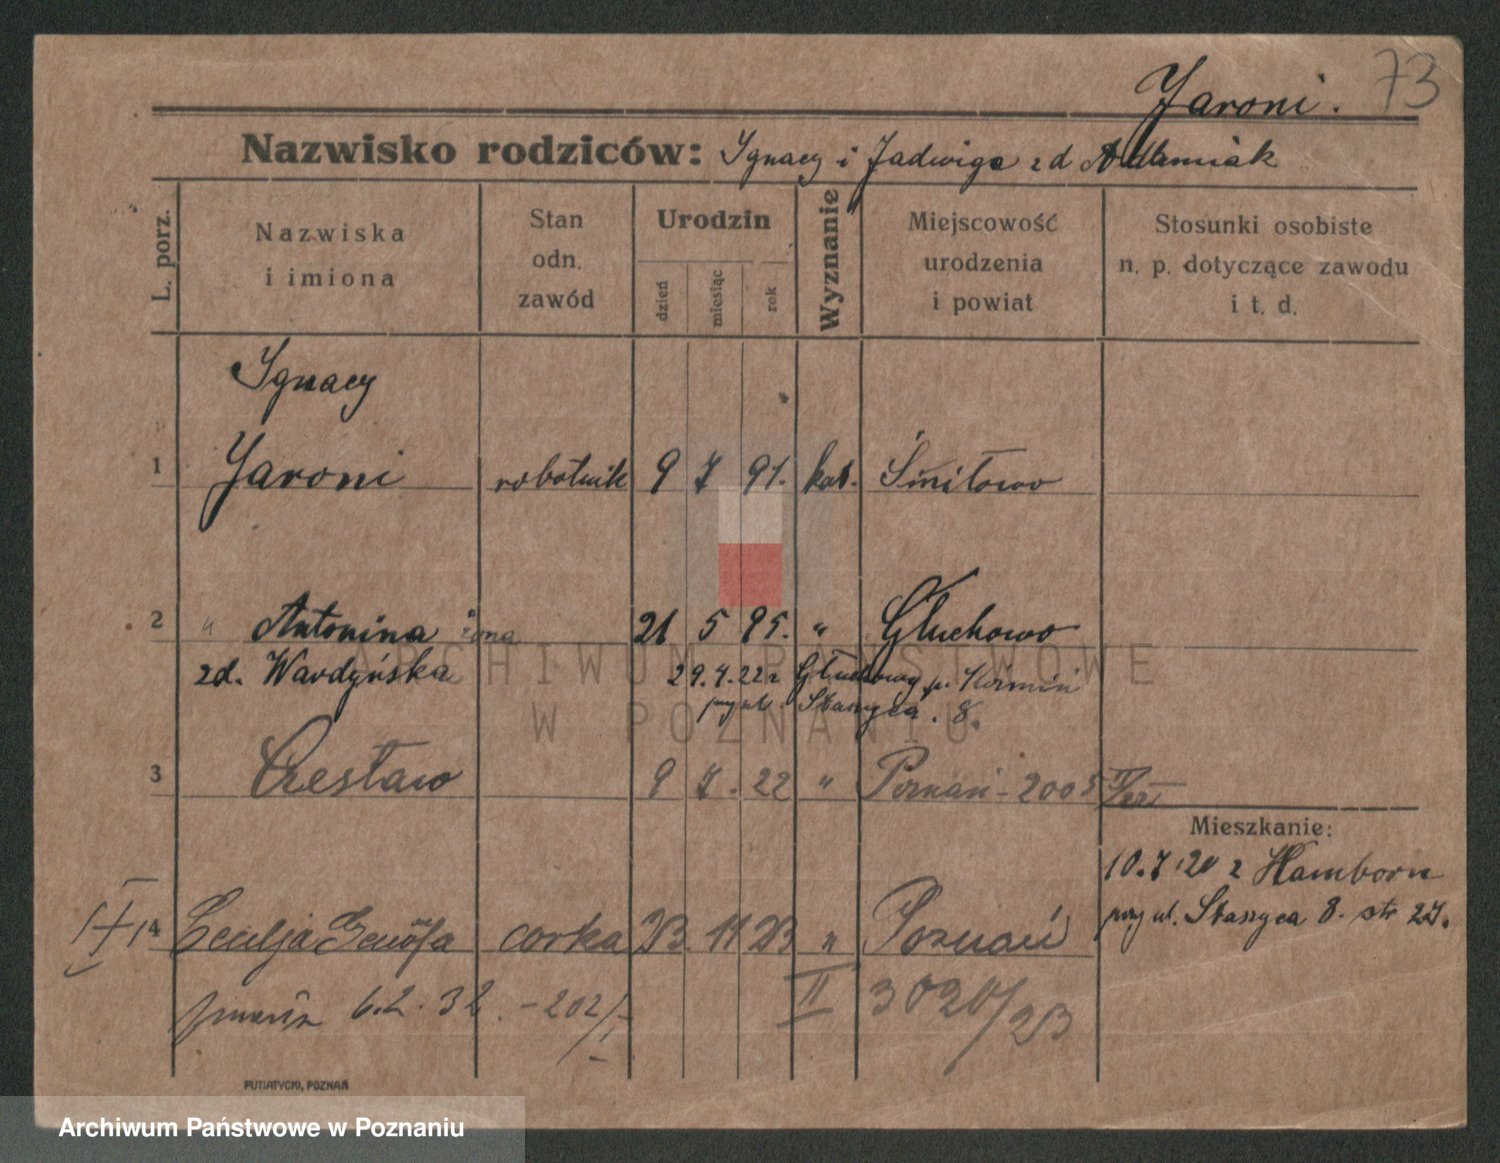 73
Jaroni.
Nazwisko rodziców: Ignacy i Jadwiga zd Adamiak
L. porz.
Nazwiska i imiona
Stan odn. zawód
Urodzin
dzień miesiąc rok
Wyznanie
Miejscowość urodzenia i powiat
Stosunki osobiste n. p. dotyczące zawodu i t. d.
Ignacy
1 Jaroni robotnik 9 7 91. kat. Śmiłowo
2 " Antonina żona 21 5 95. " Głuchowo
zd. Wardyńska 29.4.22 z Głuchowy p. Koźmin
przy ul. Staszyca 8.
3 Czesław 9 7. 22 " Poznań - 2005
Mieszkanie:
10.7.20 z Hamborn
przy ul. Staszyca 8. str 27.
4 Cecylja Genofa corka 23. 11 23 " Poznań
zmarła 6.2.32. - 202/I
II 3020/23
PUTIATYCKI, POZNAŃ
ARCHIWUM PAŃSTWOWE
W POZNANIU
Archiwum Państwowe w Poznaniu